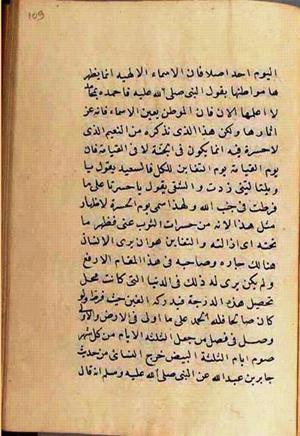 109
اليوم احد اصلا فان الاسماء الالهية انما يظهرها
مواطنها يقول النبى صلى الله عليه فاحمده بمحامد
لا اعلمها الآن فان الموطن يعين الاسماء فانه عن
آثارها ولكن هذا الذى نذكره من النعيم الذى
لا حسرة فيه انما يكون فى الجنة لا فى القيامة فان
يوم القيامة يوم التغابن للكل فالسعيد يقول يا
ويلتا ليتنى زدت والشقى يقول يا حسرتا على ما
فرطت فى جنب الله ولهذا سمى يوم الحسرة لاظهار
مثل هذا لانه من حسرات الثوب عنى فظهر ما
تحته اى ازالته والتغابن هو ان يرى الانسان
هنالك جاره وصاحبه فى هذا المقام الارفع
ولم يكن يرى له ذلك فى الدنيا التى كانت محل
تحصيل هذه الدرجة فيدركه الغبن حيث فرط ولو
كان صالحا فلله الحمد على ما اولى فى الارض والاولى
وصل فى فصل من جعل الثلثة الايام من كل شهر
صوم ايام الثلثة البيض خرج النسائى من حديث
جابر بن عبد الله عن النبى صلى الله عليه وسلم انه قال